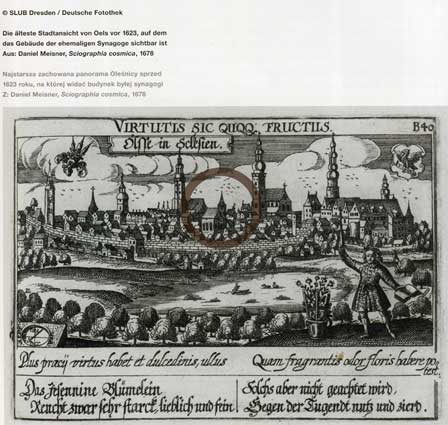 © SLUB Dresden / Deutsche Fotothek
Die älteste Stadtansicht von Oels vor 1623, auf dem
das Gebäude der ehemaligen Synagoge sichtbar ist
Aus: Daniel Meisner, Sciographia cosmica, 1678
Najstarsza zachowana panorama Oleśnicy sprzed
1623 roku, na której widać budynek byłej synagogi
Z: Daniel Meisner, Sciographia cosmica, 1678
VIRTUTIS SIC QUOQ. FRUCTUS. B40
Olße in Schlesien.
Plus pracij virtus habet et dulcedinis, ullus
Quam fragrantis odor floris habere po-
test.
Das Jesennine Blümelein
Reucht zwar sehr starck, lieblich und fein.
Solchs aber nicht geachtet wird,
Gegen der Tugendt nutz und zierd.